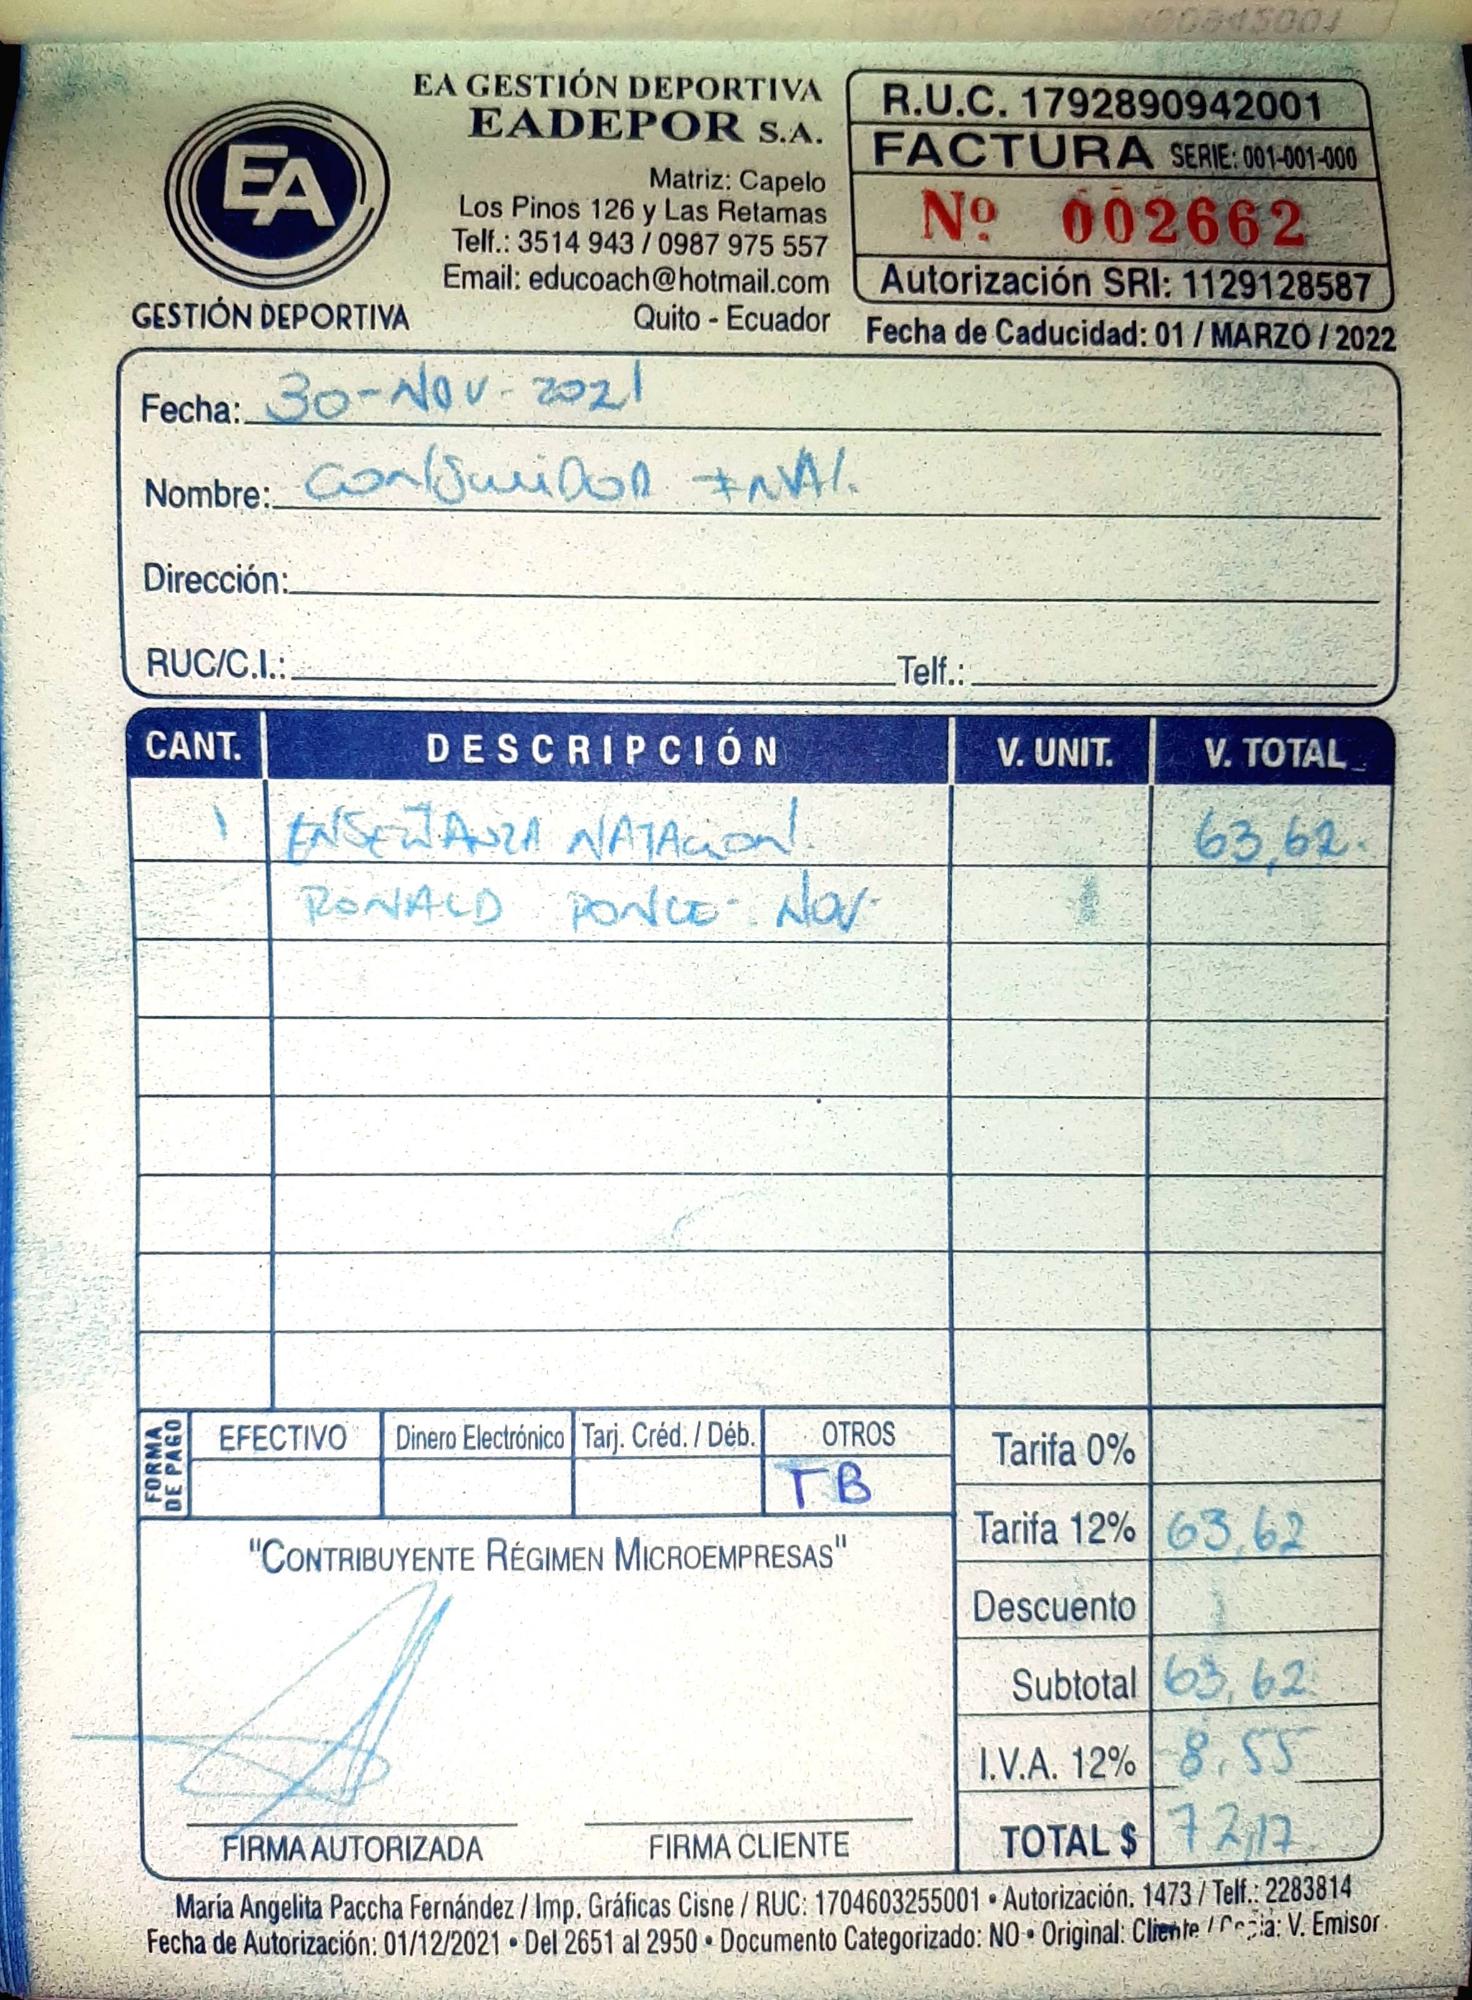 EA GESTIÓN DEPORTIVA
EADEPOR S.A.
Matriz: Capelo
Los Pinos 126 y Las Retamas
Telf.: 3514 943 / 0987 975 557
Email: educoach@hotmail.com
Quito - Ecuador
EA
GESTIÓN DEPORTIVA
R.U.C. 1792890942001
FACTURA SERIE: 001-001-000
Nº 002662
Autorización SRI: 1129128587
Fecha de Caducidad: 01 / MARZO / 2022
Fecha: 30-NOV-2021
Nombre: CONSUMIDOR FINAL.
Dirección:
RUC/C.I.: Telf.:
CANT. DESCRIPCIÓN V. UNIT. V. TOTAL
1 ENSEÑANZA NATACION. 63,62.
RONALD PONCE - NOV.
FORMA DE PAGO
EFECTIVO Dinero Electrónico Tarj. Créd. / Déb. OTROS
TB
Tarifa 0%
Tarifa 12% 63,62
Descuento
Subtotal 63,62
I.V.A. 12% 8,55
TOTAL $ 72,17
"CONTRIBUYENTE RÉGIMEN MICROEMPRESAS"
FIRMA AUTORIZADA FIRMA CLIENTE
María Angelita Paccha Fernández / Imp. Gráficas Cisne / RUC: 1704603255001 • Autorización. 1473 / Telf.: 2283814
Fecha de Autorización: 01/12/2021 • Del 2651 al 2950 • Documento Categorizado: NO • Original: Cliente / Copia: V. Emisor